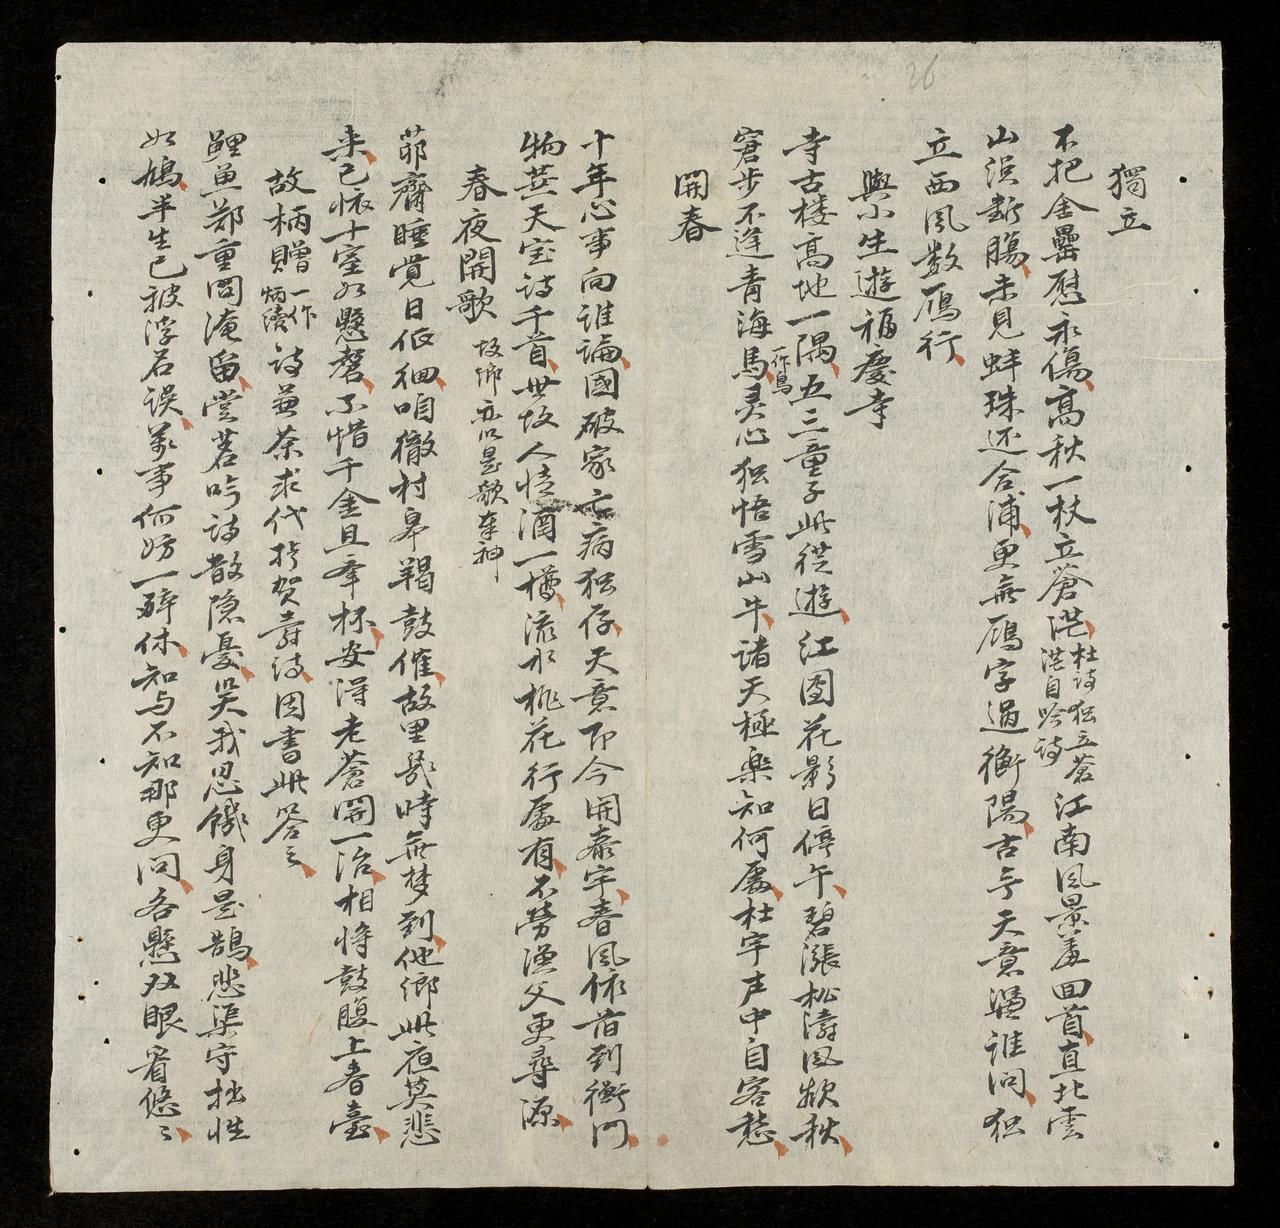 26
獨立
不把金罍慰永傷高秋一杖立蒼茫杜詩独立蒼茫自吟詩江南風景羞回首直北雲
山漫斷腸未見蚌珠还合浦更無鴈字過衡陽古今天意濕誰问独
立西風数鴈行
與小生遊福慶寺
寺古楼高地一隅一作島五三童子此從遊江国花影日停午碧漲松濤風欲秋
窘步不逢青海馬灵心独悟雪山牛諸天極楽知何處杜宇声中自客愁
開春
十年心事向谁論國破家亡病独存天意即今開泰宇春風依旧到衡门
物華天宝詩千首世故人情酒一樽流水桃花行處有不勞漁父更尋源
春夜開歌故鄉亦以是歌奉神
茆齋睡覚日低徊咱徹村皋羯鼓催故里幾時無梦到他鄉此夜莫悲
来已恢十室如懸磬不惜千金且奉杯安得老蒼開一治相將鼓腹上春臺
故柄贈一作炳續詩兼茶求代於贺寿詩因書此答之
鯉魚鄭重問淹留嘗茗吟詩散隐憂笑我忍饑身是鵲悲渠守拙性
如鳩半生已被浮名误萬事何妨一醉休知与不知那更问各懸双眼看悠〻